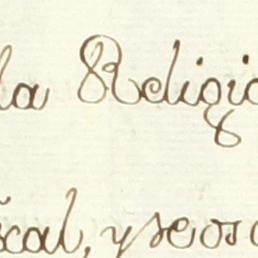 la Religio
scal, y se os